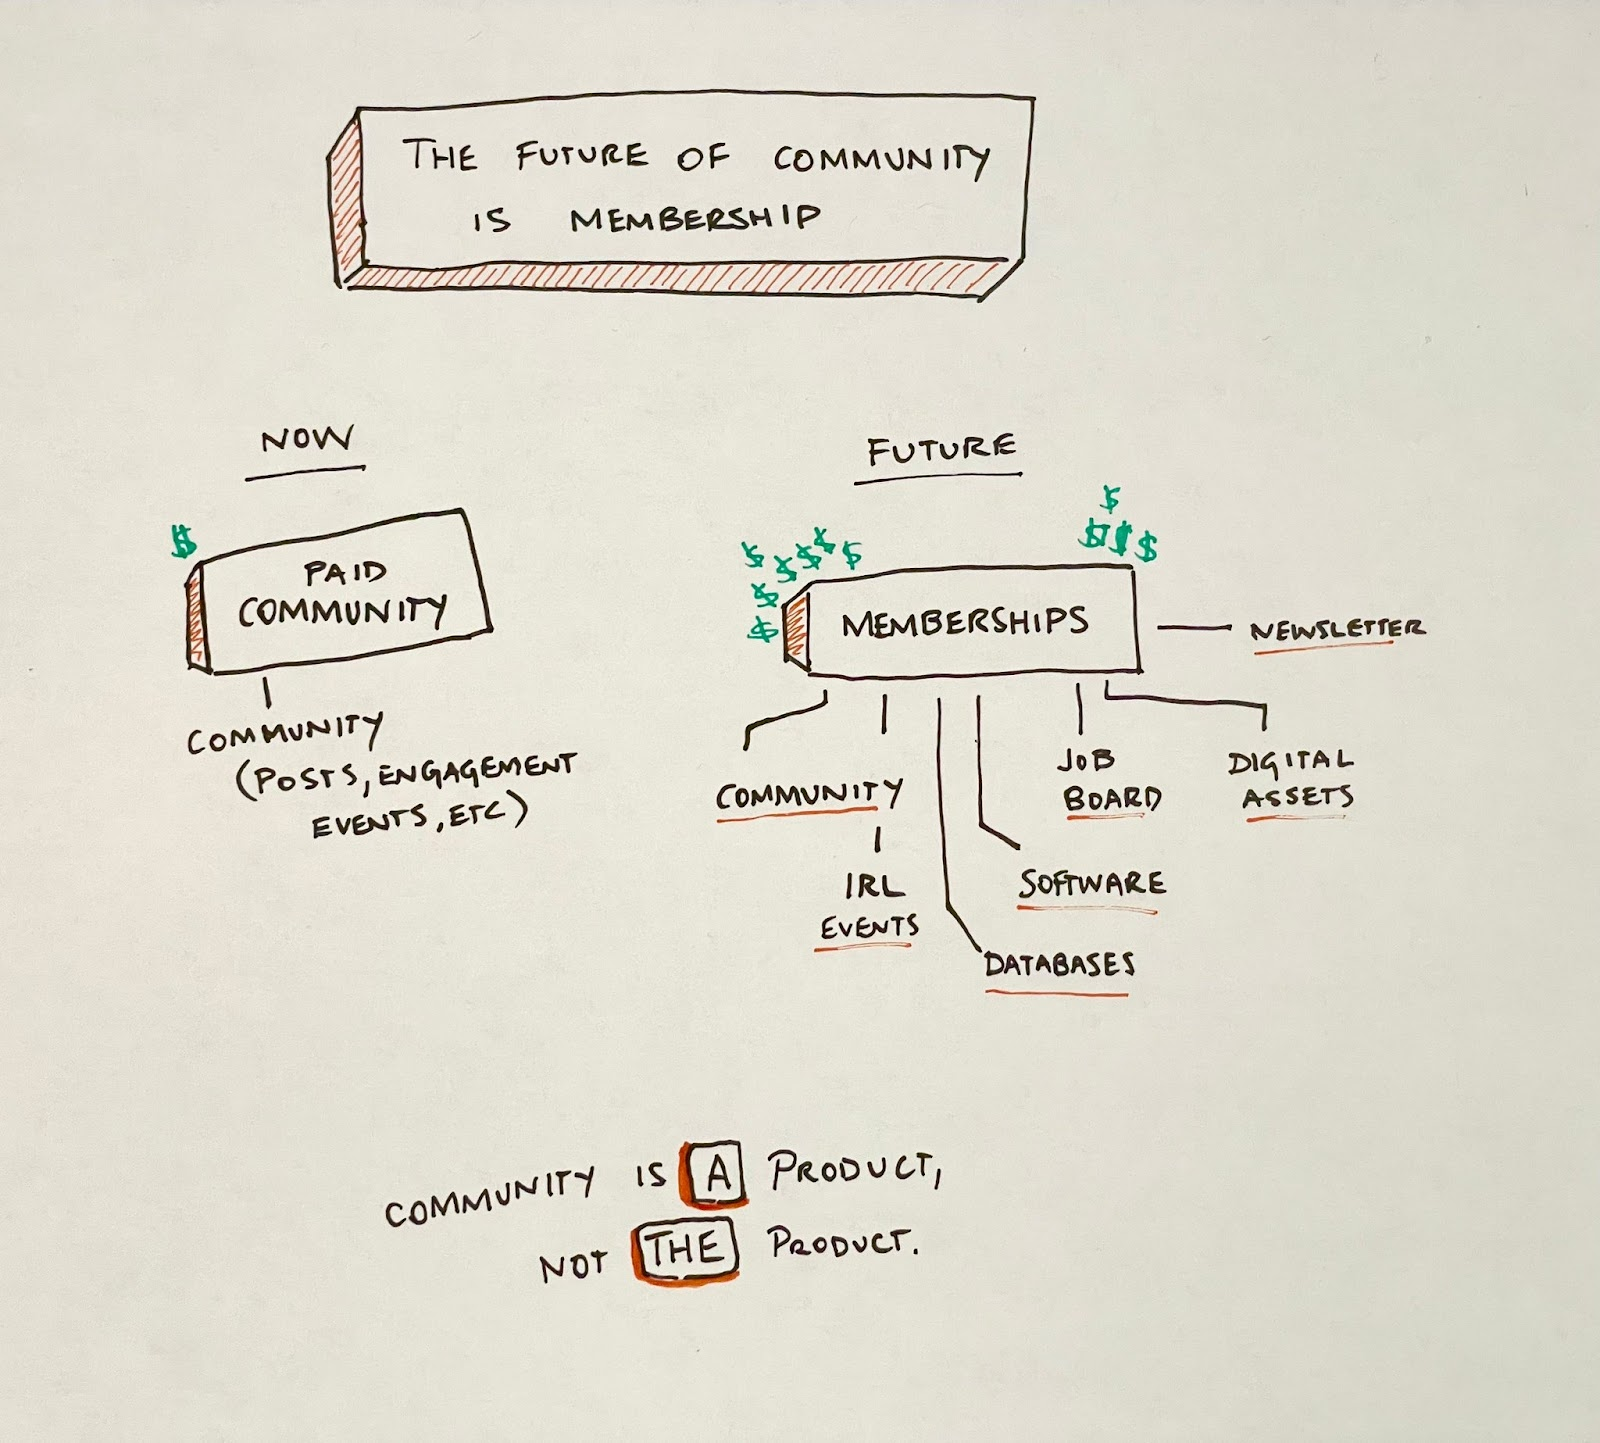 THE FUTURE OF COMMUNITY
IS MEMBERSHIP
NOW
$
PAID
COMMUNITY
COMMUNITY
(POSTS, ENGAGEMENT
EVENTS, ETC)
FUTURE
$ $ $ $ $
$
$
$
$ $ $ $
MEMBERSHIPS
NEWSLETTER
COMMUNITY
IRL
EVENTS
DATABASES
SOFTWARE
JOB
BOARD
DIGITAL
ASSETS
COMMUNITY IS A PRODUCT,
NOT THE PRODUCT.